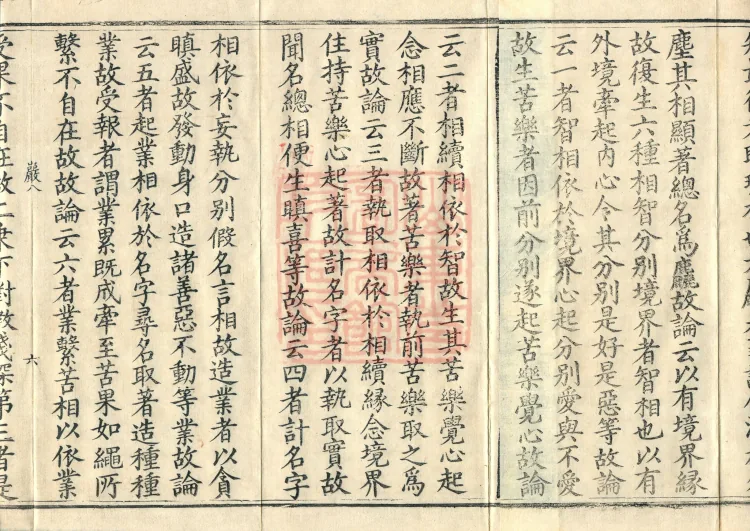 塵其相顯著總名爲麤故論云以有境界緣
故復生六種相智分別境界者智相也以有
外境牽起內心令其分別是好是惡等故論
云一者智相依於境界心起分別愛與不愛
故生苦樂者因前分別遂起苦樂覺心故論
云二者相續相依於智故生其苦樂覺心起
念相應不斷故著苦樂者執前苦樂取之爲
實故論云三者執取相依於相續緣念境界
住持苦樂心起著故計名字者以執取實故
聞名總相便生瞋喜等故論云四者計名字
相依於妄執分別假名言相故造業者以貪
瞋盛故發動身口造諸善惡不動等業故論
云五者起業相依於名字尋名取著造種種
業故受報者謂業累既成牽至苦果如繩所
繫不自在故故論云六者業繫苦相以依業
巖八
六
受果不自在故二束下對教淺深第三者是